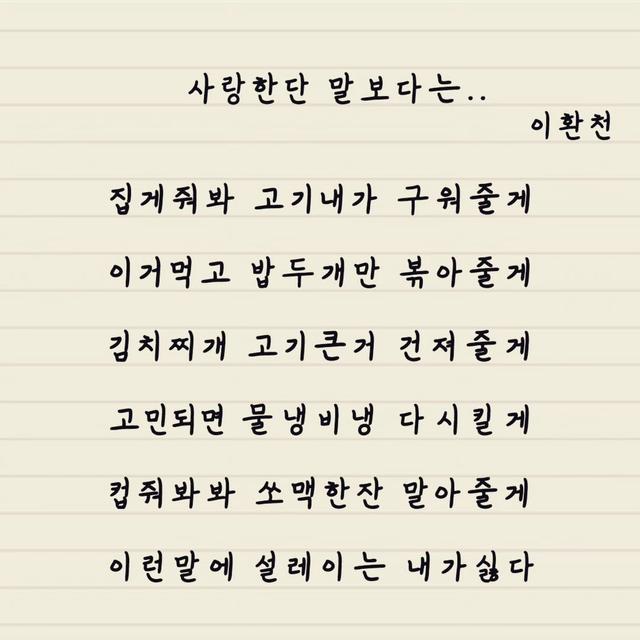 사랑한단 말보다는..
이환천
집게줘봐 고기내가 구워줄게
이거먹고 밥두개만 볶아줄게
김치찌개 고기큰거 건져줄게
고민되면 물냉비냉 다시킬게
컵줘봐봐 쏘맥한잔 말아줄게
이런말에 설레이는 내가싫다